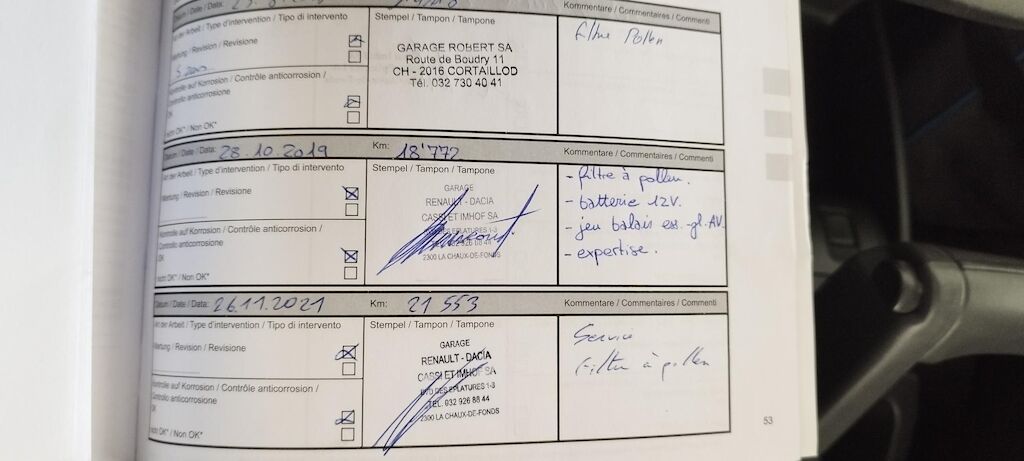 Date / Data:
Kommentare / Commentaires / Commenti
Type d'intervention / Tipo di intervento
Stempel / Tampon / Tampone
Filtre Pollen
/ Revision / Revisione
GARAGE ROBERT SA
Route de Boudry 11
CH - 2016 CORTAILLOD
Tél. 032 730 40 41
auf Korrosion / Contrôle anticorrosion /
anticorrosione
OK
nicht OK* / Non OK*
Datum / Date / Data: 28.10.2019 Km: 18'772 Kommentare / Commentaires / Commenti
der Arbeit / Type d'intervention / Tipo di intervento
Stempel / Tampon / Tampone
- filtre à pollen.
- batterie 12V.
- jeu balais ess.-gl. AV.
- expertise.
/ Revision / Revisione
GARAGE
RENAULT - DACIA
CASSI ET IMHOF SA
EPLATURES 1-3
032 926 88 44
2300 LA CHAUX-DE-FONDS
auf Korrosion / Contrôle anticorrosion /
Controllo anticorrosione
OK
nicht OK* / Non OK*
Datum / Date / Data: 26.11.2021 Km: 21 553 Kommentare / Commentaires / Commenti
Art der Arbeit / Type d'intervention / Tipo di intervento
Stempel / Tampon / Tampone
Service
Filtre à pollen
Wartung / Revision / Revisione
GARAGE
RENAULT - DACIA
CASSI ET IMHOF SA
BVD DES EPLATURES 1-3
TEL. 032 926 88 44
2300 LA CHAUX-DE-FONDS
Kontrolle auf Korrosion / Contrôle anticorrosion /
Controllo anticorrosione
OK
nicht OK* / Non OK*
53